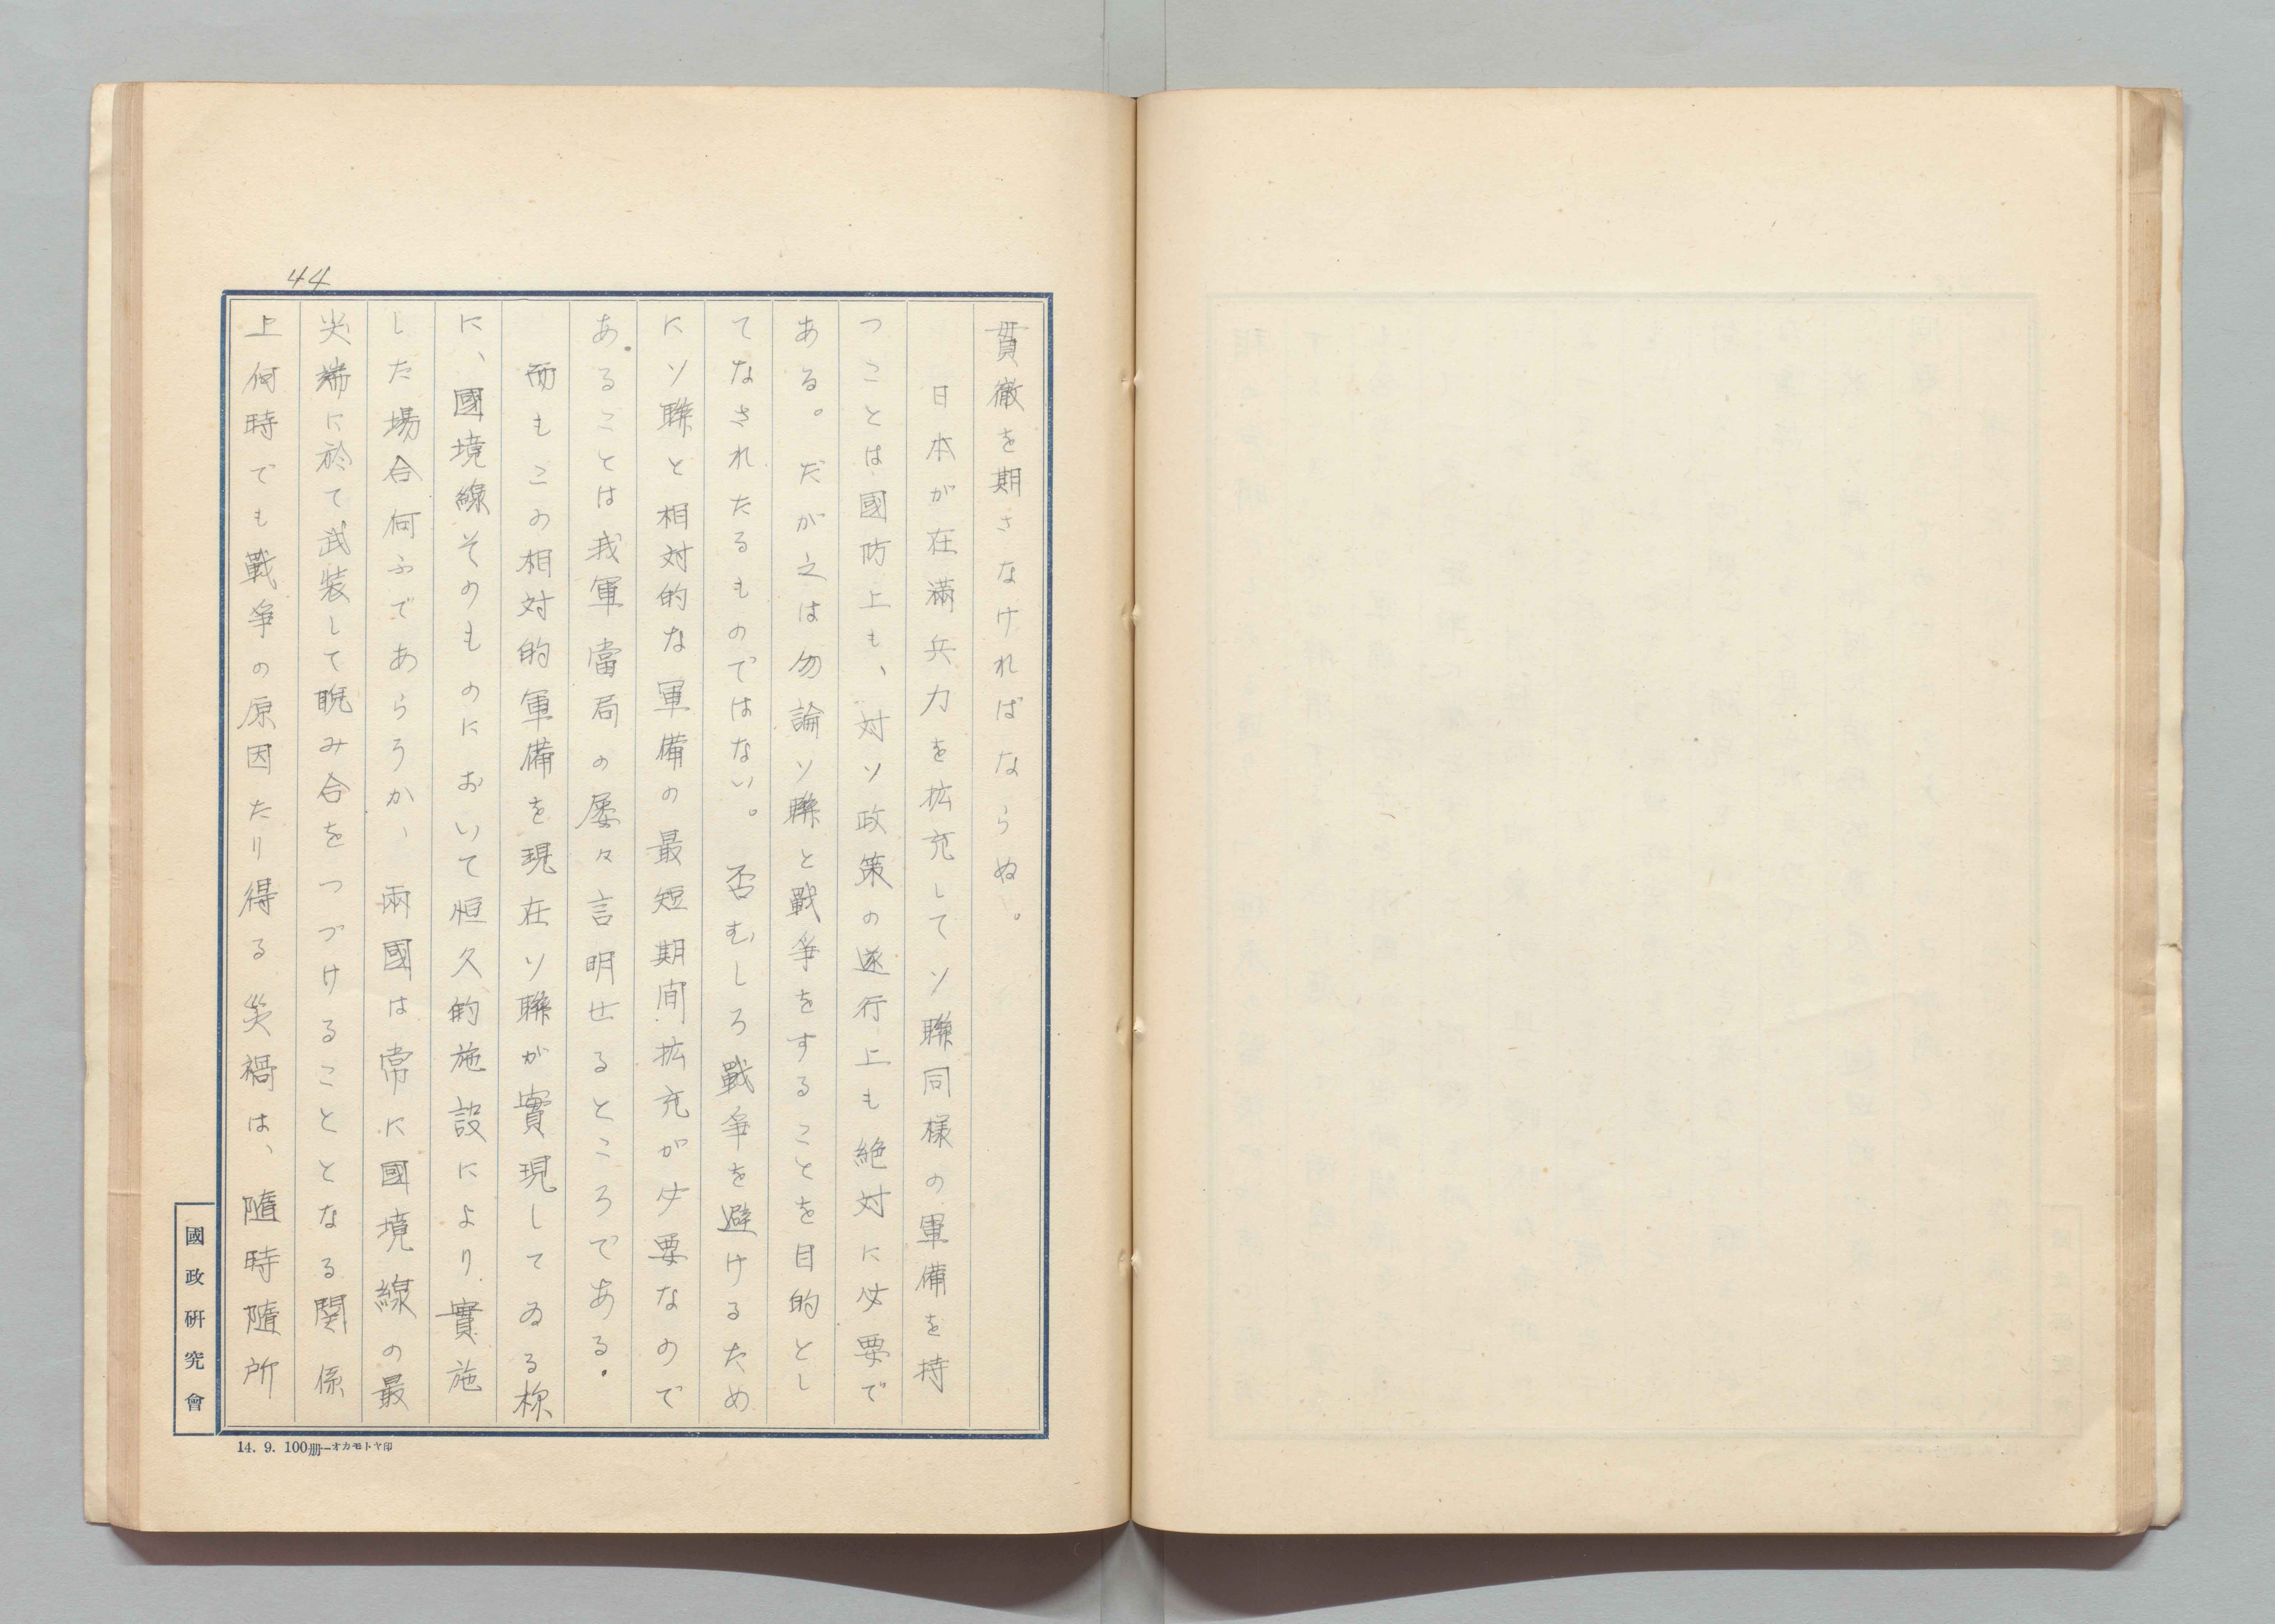 44
貫徹を期さなければならぬ。
日本が在滿兵力を拡充してソ聯同樣の軍備を持
つことは國防上も、対ソ政策の遂行上も絶対に必要で
ある。だが之は勿論ソ聯と戰爭をすることを目的とし
てなされたるものではない。否むしろ戰爭を避けるため
にソ聯と相対的な軍備の最短期间拡充が必要なので
あることは我軍當局の屡々言明せるところである。
而もこの相対的軍備を現在ソ聯が實現してゐる樣
に、國境線そのものにおいて恒久的施設により實施
した場合何ふであらうか、兩國は常に國境線の最
尖端に於て武装して睨み合をつづけることとなる関係
上何時でも戰爭の原因たり得る災禍は、隨時隨所
國政硏究會
14. 9. 100册—オカモトヤ印